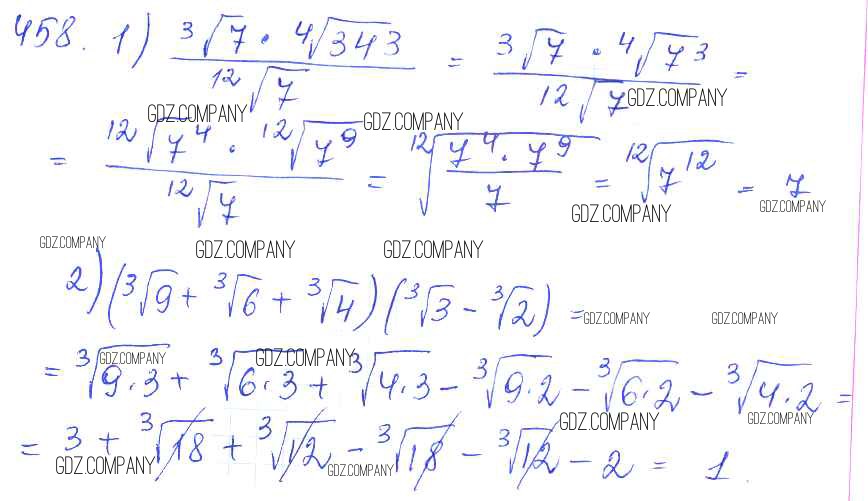 458. 1) ³√7 · ⁴√343 / ¹²√7 = ³√7 · ⁴√7³ / ¹²√7 =
GDZ.COMPANY GDZ.COMPANY GDZ.COMPANY
= ¹²√7⁴ · ¹²√7⁹ / ¹²√7 = ¹²√(7⁴ · 7⁹ / 7) = ¹²√7¹² = 7
GDZ.COMPANY GDZ.COMPANY
GDZ.COMPANY GDZ.COMPANY GDZ.COMPANY
2) (³√9 + ³√6 + ³√4) (³√3 - ³√2) =
GDZ.COMPANY GDZ.COMPANY
GDZ.COMPANY GDZ.COMPANY
= ³√9·3 + ³√6·3 + ³√4·3 - ³√9·2 - ³√6·2 - ³√4·2 =
GDZ.COMPANY GDZ.COMPANY
= 3 + ³√18 + ³√12 - ³√18 - ³√12 - 2 = 1
GDZ.COMPANY GDZ.COMPANY